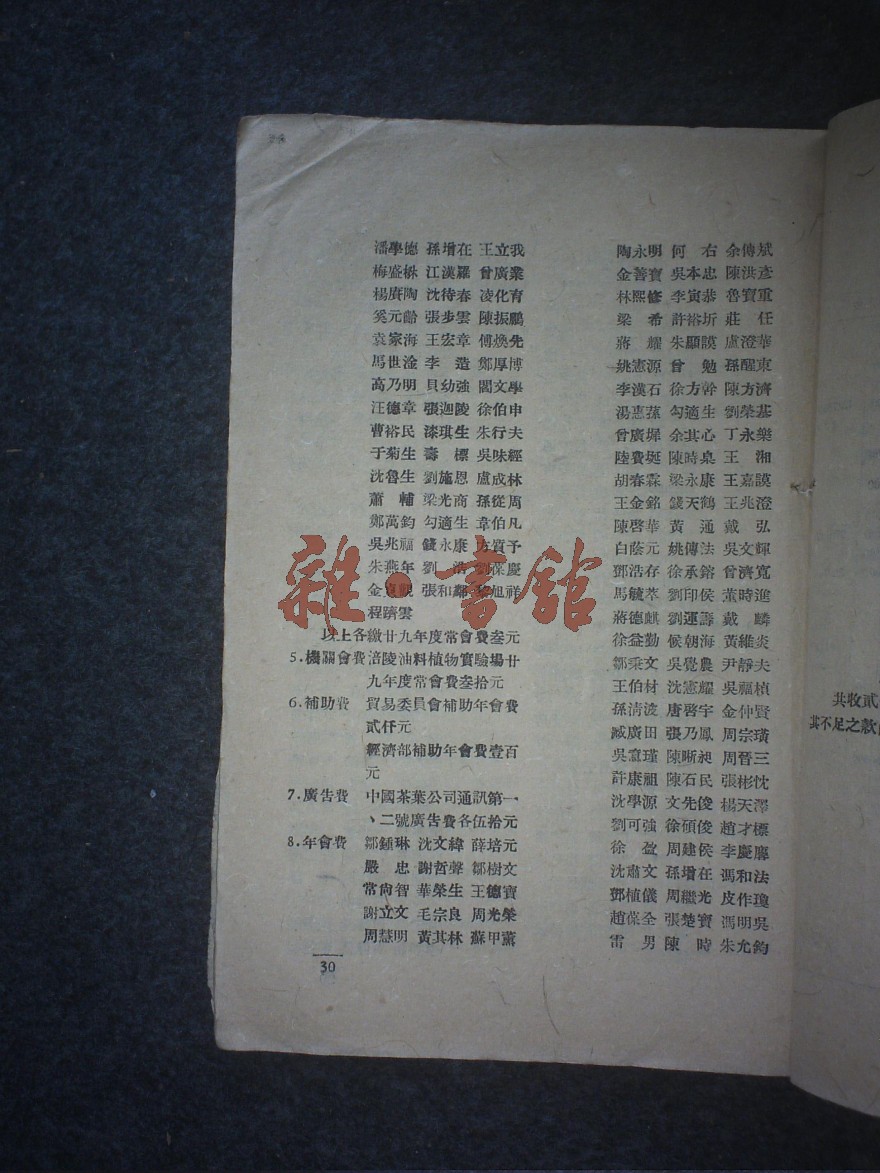 潘學德 孫增在 王立我
梅盛林 江漢羅 曾廣業
楊賡陶 沈待春 凌化育
奚元齡 張步雲 陳振鵬
袁家海 王宏章 傅煥先
馬世淦 李造 鄭厚博
高乃明 貝幼強 閻文學
汪德章 張迦陵 徐伯申
曹裕民 漆琪生 朱行夫
于菊生 壽標 吳味經
沈魯生 劉施恩 盧成林
蕭輔 梁光商 孫從周
鄭萬鈞 勾適生 韋伯凡
吳兆福 錢永康 方質予
朱燕年 劉浩 劉葆慶
金 張和 旭祥
程躋雲
以上各繳廿九年度常會費叁元
5.機關會費 涪陵油料植物實驗場廿
九年度常會費叁拾元
6.補助費 貿易委員會補助年會費
貳仟元
經濟部補助年會費壹百
元
7.廣告費 中國茶葉公司通訊第一
、二號廣告費各伍拾元
8.年會費 鄒鍾琳 沈文緯 薛培元
嚴忠 謝哲聲 鄒樹文
常向智 華榮生 王德寶
謝立文 毛宗良 周光榮
周慧明 黃其林 蘇甲薰
30
陶永明 何右 余傳斌
金善寶 吳本忠 陳洪彥
林熙修 李寅恭 魯寶重
梁希 許裕圻 莊任
蔣耀 朱顯謨 盧澄華
姚憲源 曾勉 孫醒東
李漢石 徐方幹 陳方濟
湯惠蓀 勾適生 劉榮基
曾廣墀 余其心 丁永樂
陸費珽 陳時臬 王湘
胡春霖 梁永康 王嘉謨
王金銘 錢天鶴 王兆澄
陳啓華 黃通 戴弘
白蔭元 姚傳法 吳文輝
鄧浩存 徐承鎔 曾濟寬
馬毓 劉印侯 董時進
蔣德麒 劉運籌 戴麟
徐益勤 侯朝海 黃維炎
鄒秉文 吳覺農 尹靜夫
王伯材 沈憲耀 吳福楨
孫清波 唐啓宇 金仲賢
臧廣田 張乃鳳 周宗璜
吳 瑾 陳晰昶 周晉三
許康祖 陳石民 張彬忱
沈學源 文先俊 楊天澤
劉可強 徐碩俊 趙才標
徐盈 周建侯 李慶麐
沈肅文 孫增在 馮和法
鄧植儀 周繼光 皮作瓊
趙葆全 張楚寶 馮明吳
雷男 陳時 朱允鈞
共收貳
其不足之款
雜·書館